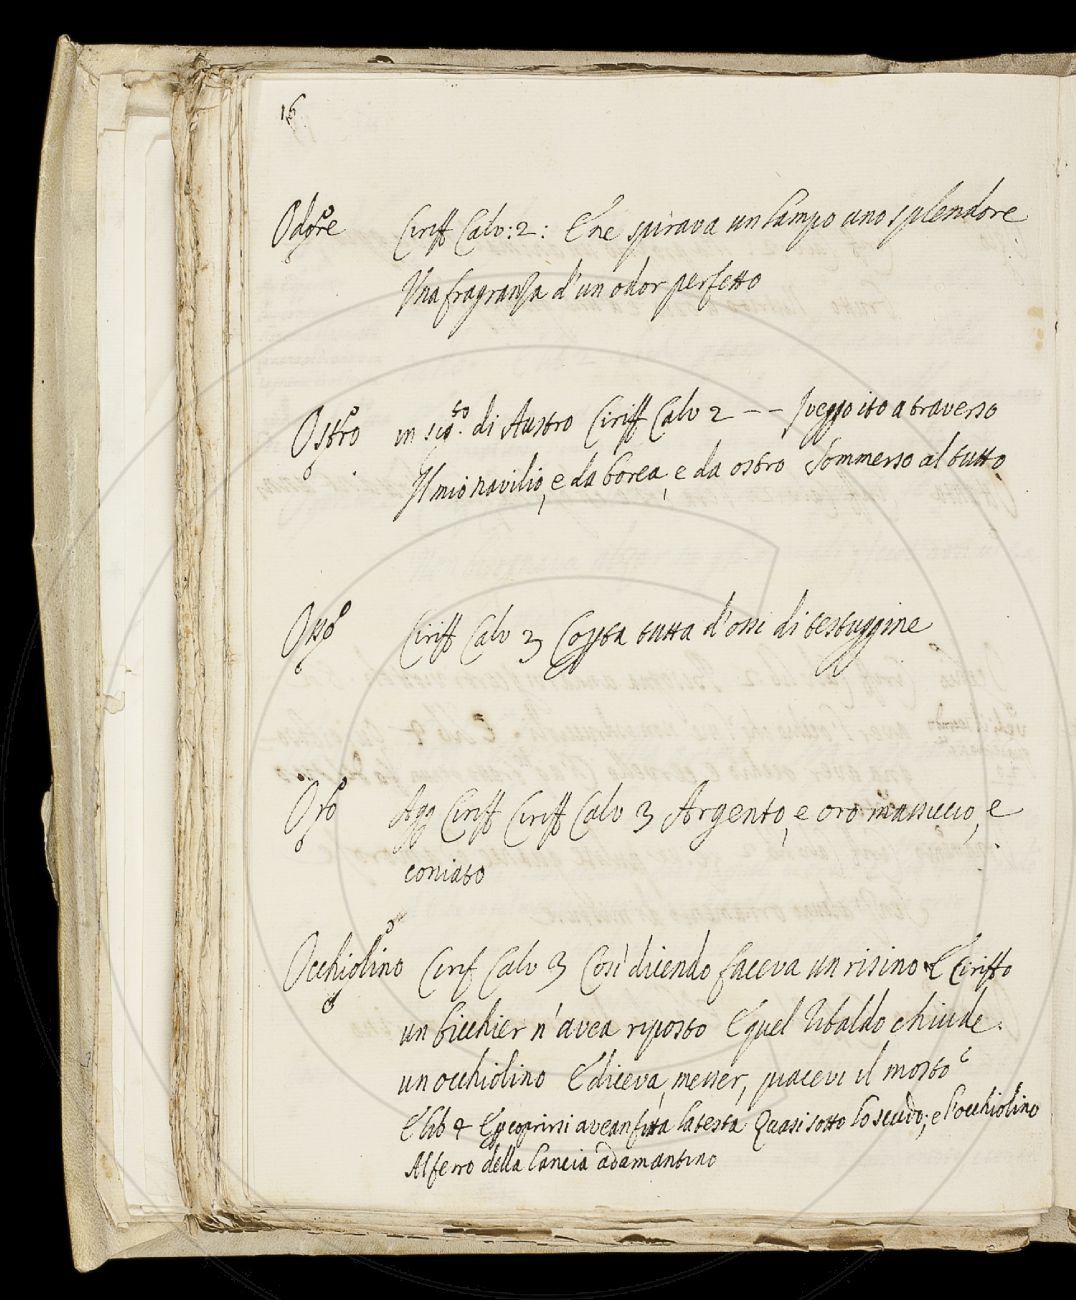 16
Odore Ciriff Calv: 2: E ne spirava un lampo uno splendore
Una fragranza d'un odor perfetto
Ostro in sig.to di Austro Ciriff Calv 2 -- I veggo ito a traverso
Il mio navilio, e da borea, e da ostro Sommerso al tutto
Osso Ciriff Calv 3 Coperta tutta d'ossi di testuggine
Oro Agg Ciriff Ciriff Calv 3 Argento, e oro massiccio, e
coniato
Occhiolino Cirif Calv 3 Così dicendo faceva un risino E Ciriffo
un bicchier n'avea riposto E quel Ubaldo chiude
un occhiolino E diceva, messer, piacevi il mosto
E lib 4 E coprirsi avean fitta la testa Quasi sotto lo scudo, e l'occhiolino
Al ferro della lancia adamantino